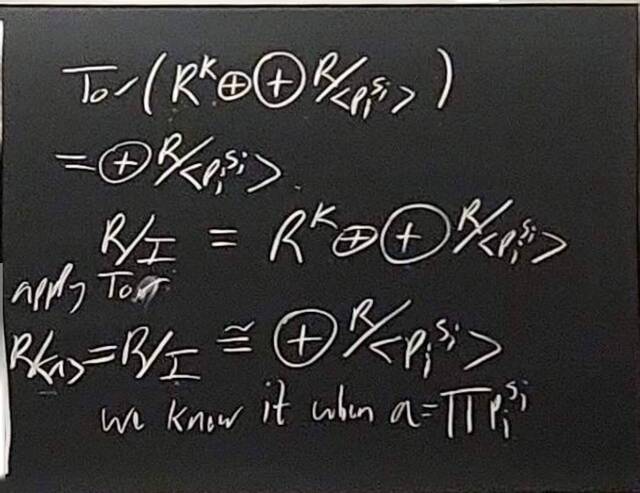 Tor(R^k ⊕ ⊕ R/<p_i^{s_i}>)
= ⊕ R/<p_i^{s_i}>.
R/I = R^k ⊕ ⊕ R/<p_i^{s_i}>
apply Tor
R/<a> = R/I ≅ ⊕ R/<p_i^{s_i}>
we know it when a = ∏ p_i^{s_i}